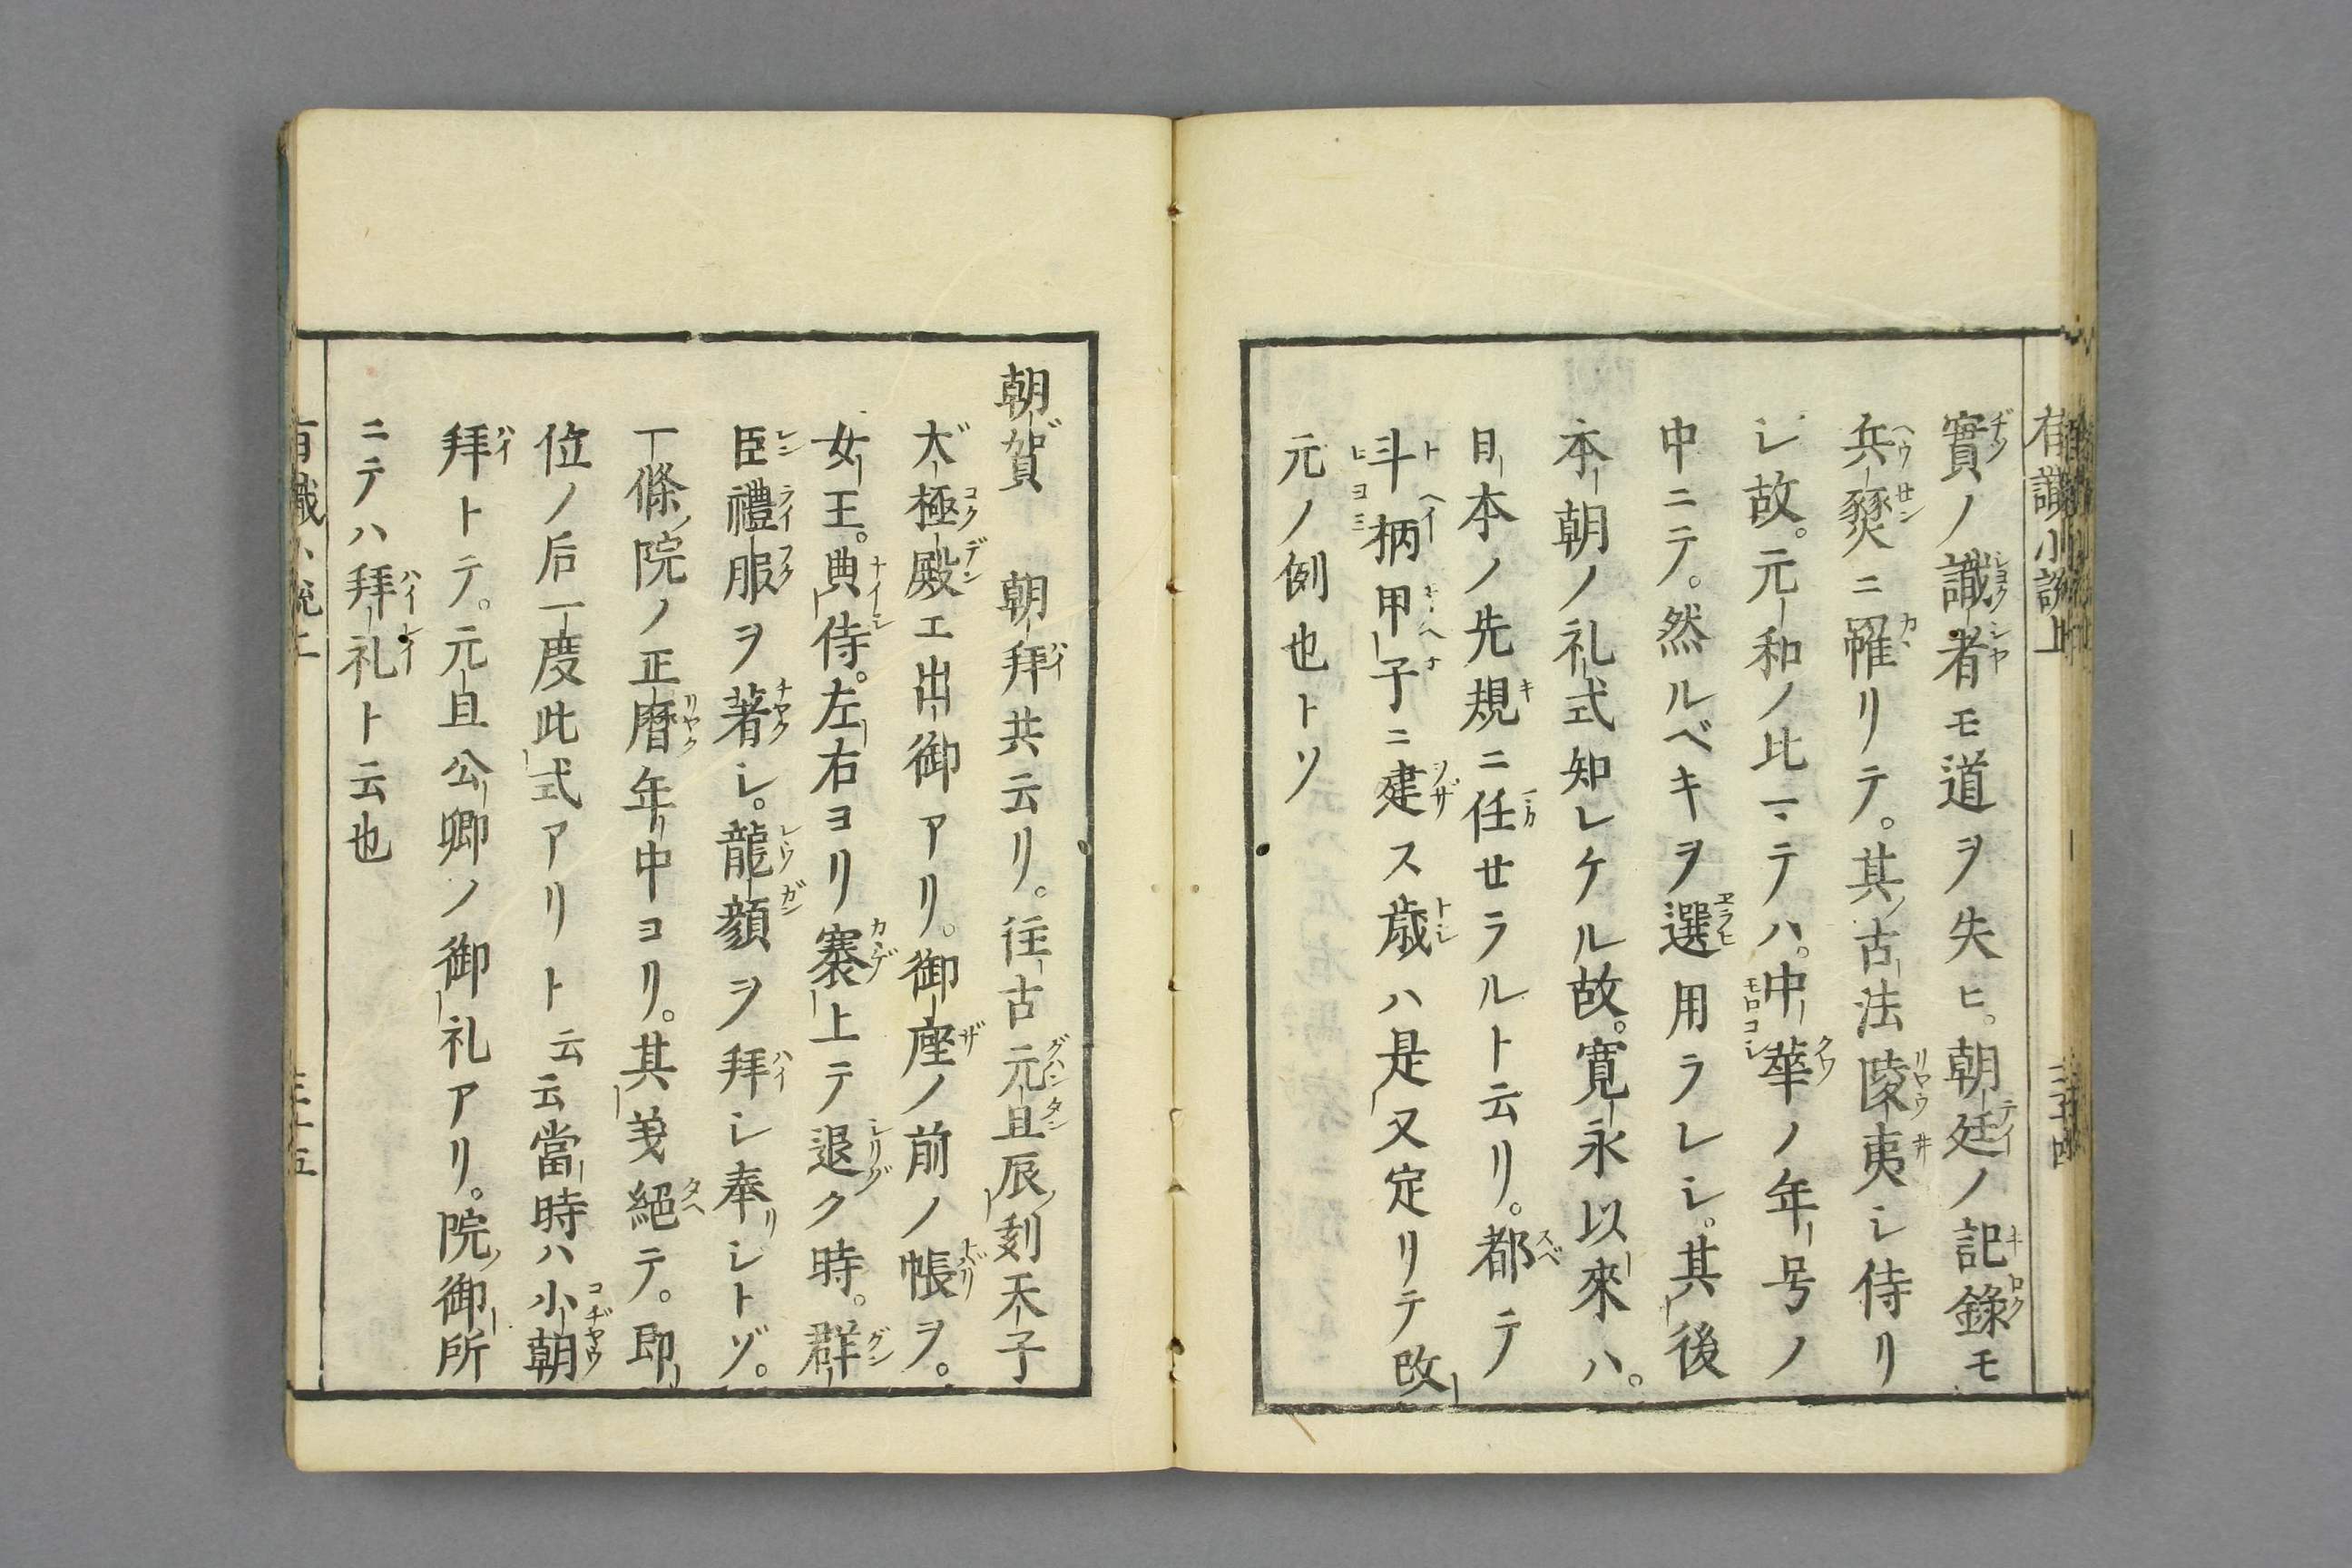 有識小説上
實ノ識者モ道ヲ失ヒ。朝廷ノ記錄モ
兵燹ニ罹リテ。其ノ古法陵夷シ侍リ
シ故。元和ノ比マテハ。中華ノ年号ノ
中ニテ。然ルベキヲ選用ラレシ。其後
本朝ノ礼式知レケル故。寛永以來ハ。
日本ノ先規ニ任セラルト云リ。都テ
斗柄甲子ニ建ス歳ハ是又定リテ改
元ノ例也トソ
朝賀 朝拜共云リ。往古元旦辰ノ刻天子
大極殿エ出御アリ。御座ノ前ノ帳ヲ。
女王。典侍。左右ヨリ褰上テ退ク時。群
臣禮服ヲ著シ。龍顔ヲ拜シ奉リシトゾ。
一條ノ院ノ正曆年中ヨリ。其義絕テ。即
位ノ后一度此式アリト云云當時ハ小朝
拜トテ。元旦公卿ノ御礼アリ。院ノ御所
ニテハ拜礼ト云也